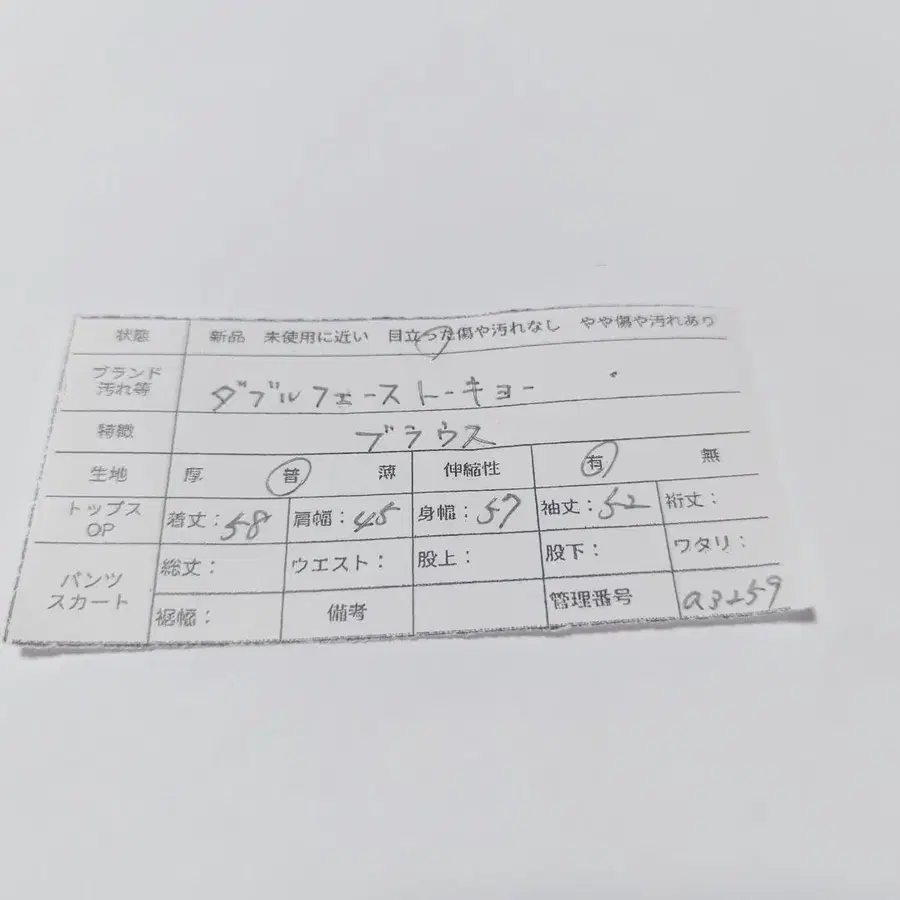 状態 新品 未使用に近い 目立った傷や汚れなし やや傷や汚れあり
ブランド
汚れ等 ダブルフェーストーキョー
特徴 ブラウス
生地 厚 普 薄 伸縮性 有 無
トップス
OP 着丈：58 肩幅：45 身幅：57 袖丈：52 裄丈：
パンツ
スカート 総丈： ウエスト： 股上： 股下： ワタリ：
裾幅： 備考 管理番号 a3259